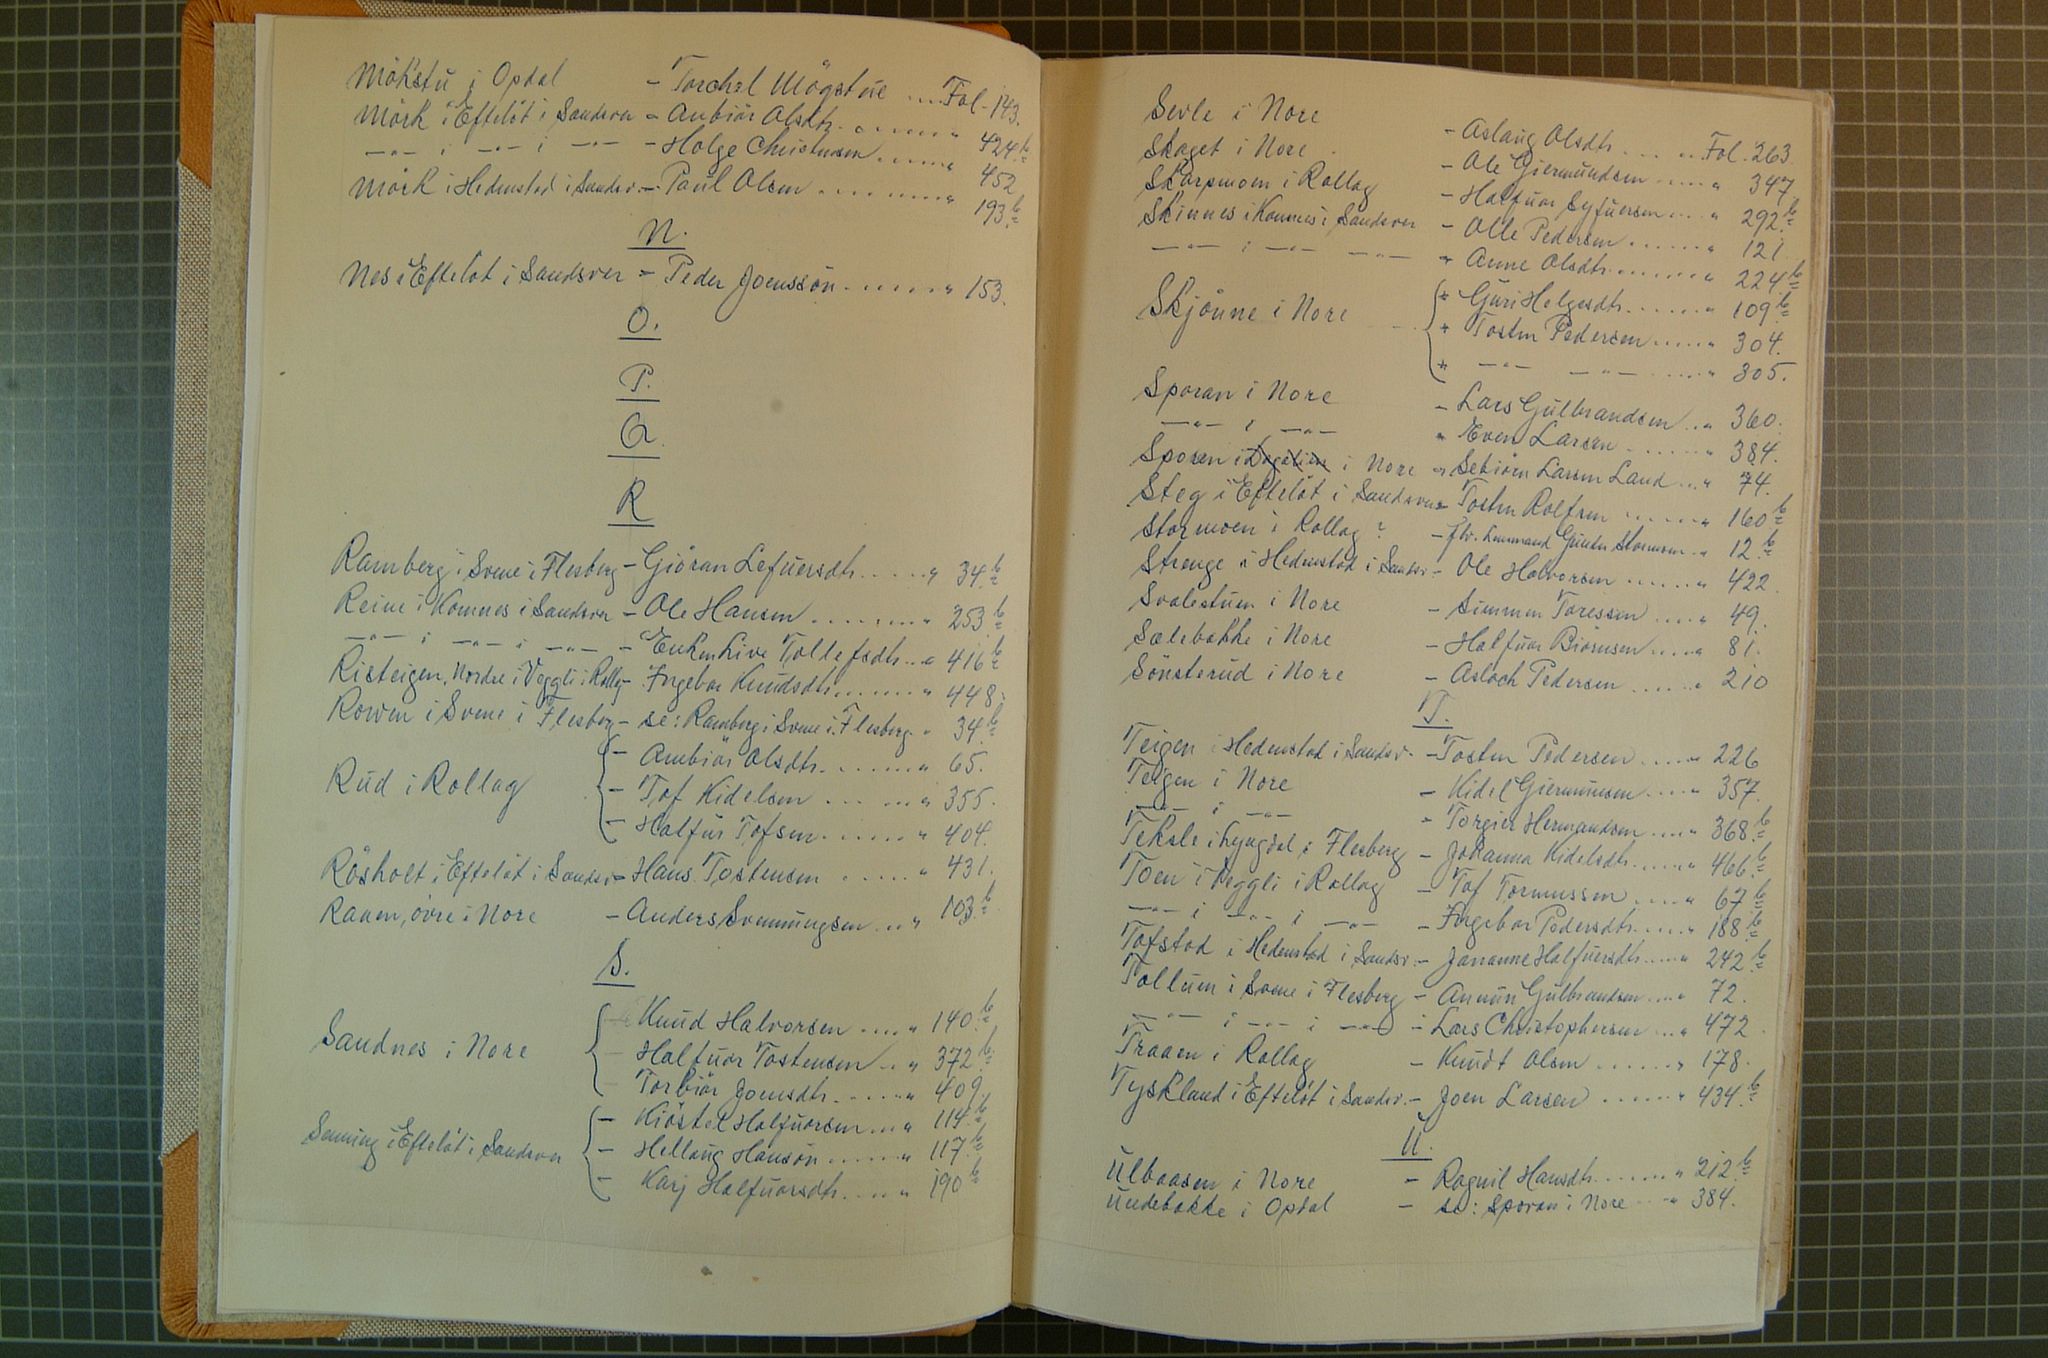 Mökstu i Opdal - Torchel Mögstue .... Fol. 143.
Mörk i Efteløt i Sandsvær - Anbiör Olsdtr. ....... " 424 b
—"— i —"— i —"— - Holge Christensen ....... " 452
Mörk i Hedenstad i Sandsv. - Paul Olsen ......... " 193 b
N.
Nes i Efteløt i Sandsver - Peder Joenssön ........ " 153.
O.
P.
Q.
R
Ramberg i Svene i Flesberg - Giöran Lefuersdtr. ...... " 34. b
Reine i Komnes i Sandsver - Ole Hansen ......... " 253 b
—"— i —"— i —"— - Enken Live Tollefsdtr. .. " 416 b
Risteigen, Nordre i Veggli i Rollag - Ingebor Knudsdtr. ....... " 448.
Rowen i Svene i Flesberg - se: Ramberg i Svene i Flesberg. " 34. b
Rud i Rollag
- Ambiör Olsdtr. ....... " 65.
- Tof Kidelsen ... ... " 355.
- Halfur Tofsen ....... " 404.
Rösholt i Efteløt i Sandsv - Hans Tostensen ...... " 431.
Raaen, övre i Nore - Anders Svenningsen ... " 103. b
S.
Sandnes i Nore
- Knud Halvorsen .... " 140. b
- Halfuor Tostensen ... " 372. b
- Torbiör Joensdtr. ...... " 409.
Senning i Efteløt i Sandsver
- Kiöstel Halfuorsen ... " 114. b
- Hellaug Hansön ....... " 117. b
- Karj Halfuorsdtr. .... " 190 b
Sevle i Nore - Aslaug Olsdtr. .... Fol. 263.
Skaget i Nore. - Ole Giermundsen ..... " 347
Skarpmoen i Rollag - Halfuor Syfuersen .... " 292. b
Skinnes i Komnes i Sandsver - Olle Pedersen ....... " 121.
—"— i —"— —"— " Anne Olsdtr. ........ " 224 b
Skjönne i Nore
" Guri Helgesdtr. ....... " 109 b
" Tosten Pedersen ...... " 304.
" —"— —"— ..... " 305.
Sporan i Nore - Lars Gulbrandsen .. " 360.
—"— i —"— " Even Larsen ....... " 384.
Sporen i i Nore - Sebiörn Larsen Land ... " 74.
Steg i Efteløt i Sandsver - Tosten Rolfsen ....... " 160 b
Stormoen i Rollag? - Gunder Stormoen .. " 12. b
Strenge i Hedenstad i Sandsv - Ole Halvorsen ....... " 422.
Svalestuen i Nore - Simmen Toressen .... " 49.
Sælebakke i Nore - Halfuor Biörnsen .... " 81.
Sönsterud i Nore - Asloch Pedersen ...... " 210
T.
Teigen i Hedenstad i Sandsv. - Tosten Pedersen ..... " 226
Teigen i Nore - Kidel Giermunsen .... " 357.
—"— i —"— " Torgier Hermandsen .... " 368. b
Teksle i Lyngdal i Flesberg - Johanna Kidelsdtr. ..... " 466. b
Toen i Veggli i Rollag - Tof Tormussen ..... " 67 b
—"— i —"— i —"— - Ingebor Pedersdtr. .... " 188 b
Tofstad i Hedenstad i Sandsv. - Johanne Halfuersdtr. .... " 242. b
Tollum i Svene i Flesberg - Amun Gulbrandsen .... " 72.
—"— i —"— i —"— - Lars Christophersen ... " 472.
Traaen i Rollag - Knudt Olsen ....... " 178.
Tyskland i Efteløt i Sandsv. - Joen Larsen ....... " 434. b
U.
Ulbaasen i Nore - Ragnil Hansdtr. ...... " 212 b
Undebakke i Opdal - se: Sporan i Nore .... " 384.